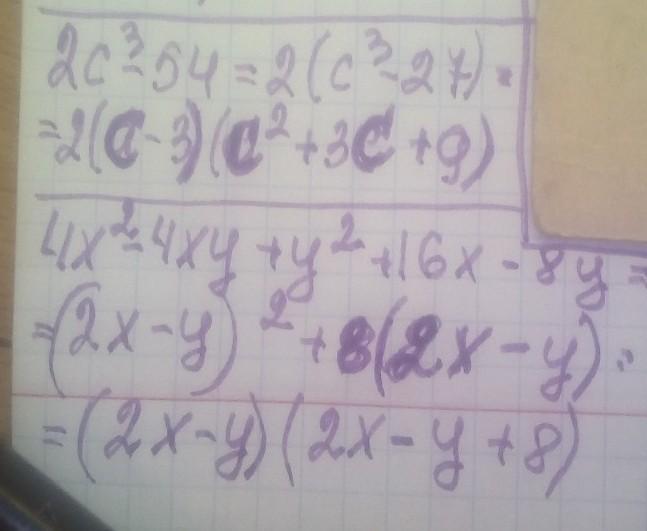 2c³-54=2(c³-27)=
=2(c-3)(c²+3c+9)
4x²-4xy+y²+16x-8y=
=(2x-y)²+8(2x-y)=
=(2x-y)(2x-y+8)